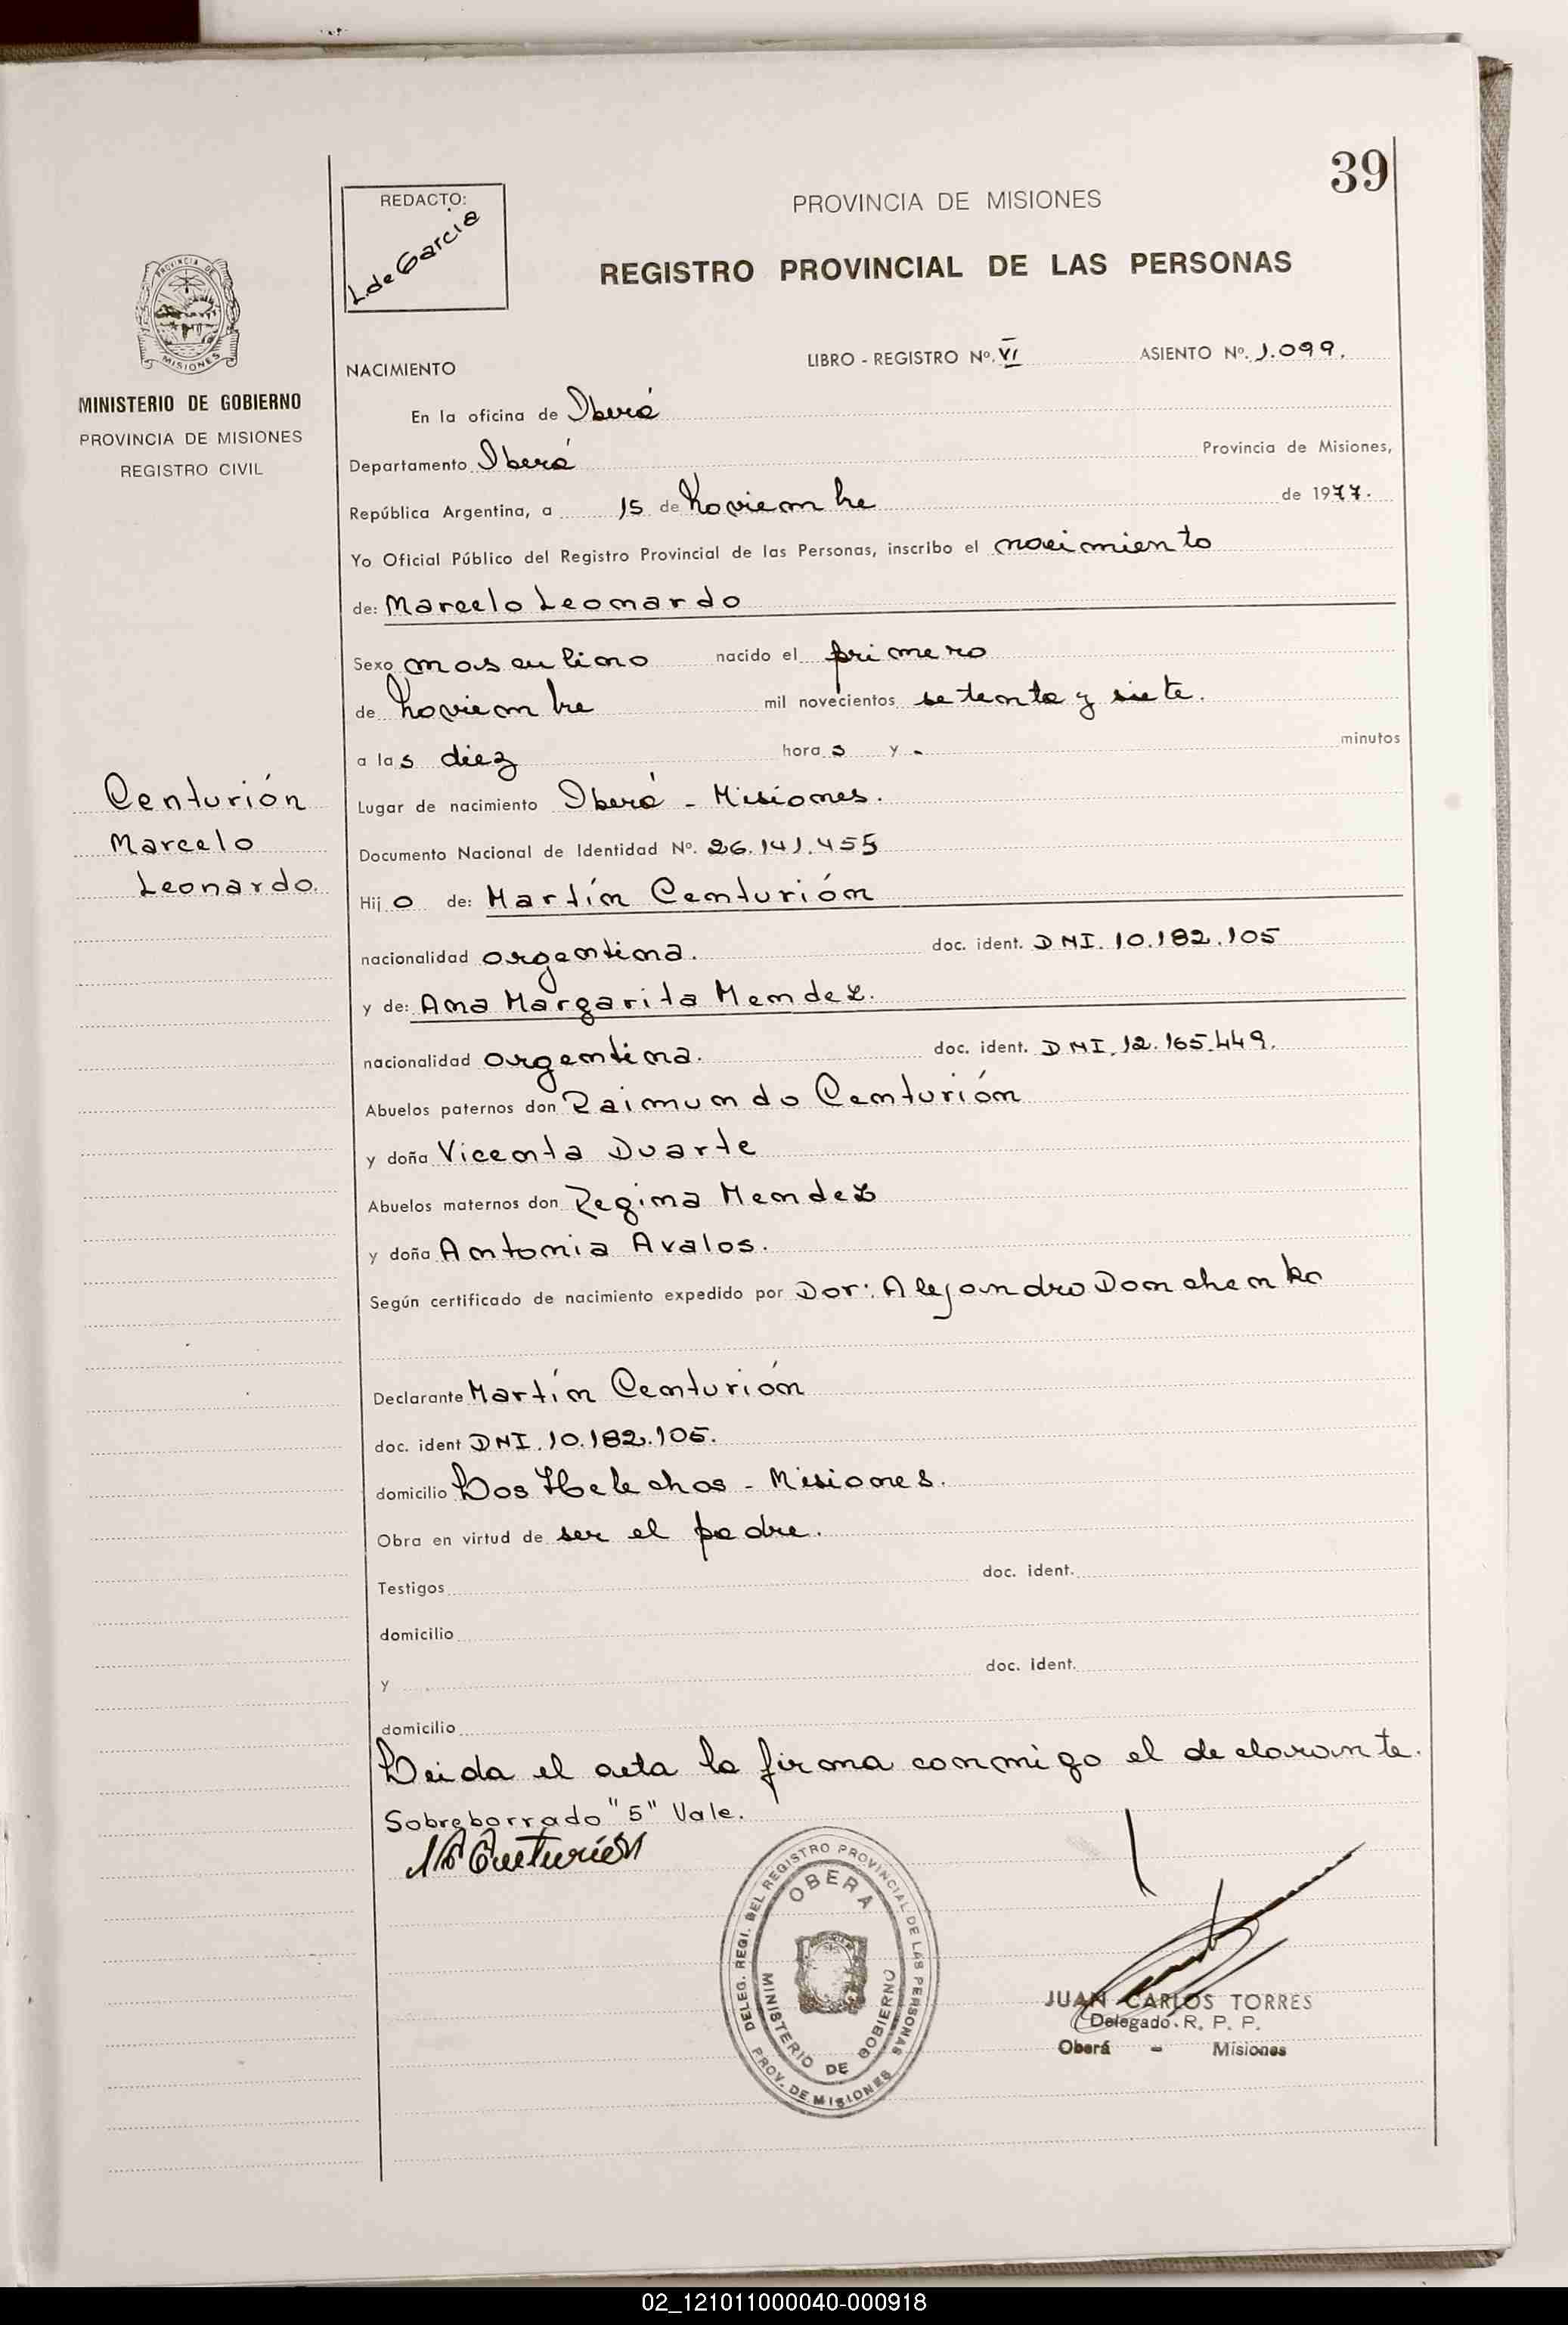 39
REDACTO:
L. de Garcia
PROVINCIA DE MISIONES
REGISTRO PROVINCIAL DE LAS PERSONAS
PROVINCIA DE
MISIONES
MINISTERIO DE GOBIERNO
PROVINCIA DE MISIONES
REGISTRO CIVIL
NACIMIENTO LIBRO - REGISTRO Nº. VI ASIENTO Nº. 1.099.
En la oficina de Oberá
Departamento Oberá Provincia de Misiones,
República Argentina, a 15 de Noviembre de 1977.
Yo Oficial Público del Registro Provincial de las Personas, inscribo el nacimiento
de: Marcelo Leonardo
Sexo masculino nacido el primero
de Noviembre mil novecientos setenta y siete.
a las diez horas y -. minutos
Centurión
Marcelo
Leonardo.
Lugar de nacimiento Oberá - Misiones.
Documento Nacional de Identidad Nº. 26.141.455
Hijo de: Martín Centurión
nacionalidad argentina. doc. ident. DNI. 10.182.105
y de: Ana Margarita Mendez.
nacionalidad argentina. doc. ident. DNI. 12.165.449.
Abuelos paternos don Raimundo Centurión
y doña Vicenta Duarte
Abuelos maternos don Regina Mendez
y doña Antonia Avalos.
Según certificado de nacimiento expedido por Dor: Alejandro Domchenko
Declarante Martín Centurión
doc. ident DNI. 10.182.105.
domicilio Dos Helechos - Misiones.
Obra en virtud de ser el padre.
Testigos doc. ident.
domicilio
y doc. ident.
domicilio
Leida el acta la firma conmigo el declarante.
Sobreborrado "5" Vale.
Centurión
DELEG. REGI. DEL REGISTRO PROVINCIAL DE LAS PERSONAS
OBERA
MINISTERIO DE GOBIERNO
PROV. DE MISIONES
JUAN CARLOS TORRES
Delegado. R. P. P.
Oberá - Misiones
02_121011000040-000918